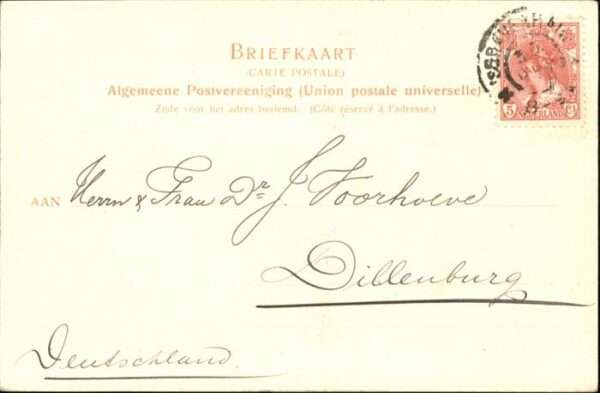 BRIEFKAART
(CARTE POSTALE)
Algemeene Postvereeniging (Union postale universelle)
Zijde voor het adres bestemd. (Côté réservé à l'adresse.)
AAN Herrn & Frau Dr. J. Voorhoeve
Dillenburg
Deutschland.
5 NEDERLAND CT